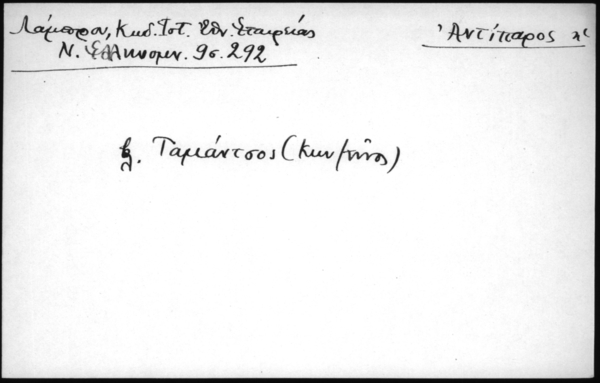 Λάμπρου, Κωδ. Ἱστ. Ἐθν. Ἑταιρείας
Ν. Ἑλληνομν. 9 σ. 292
Ἀντίπαρος
βλ. Ταμιάντσος (Κων/τῖνος)